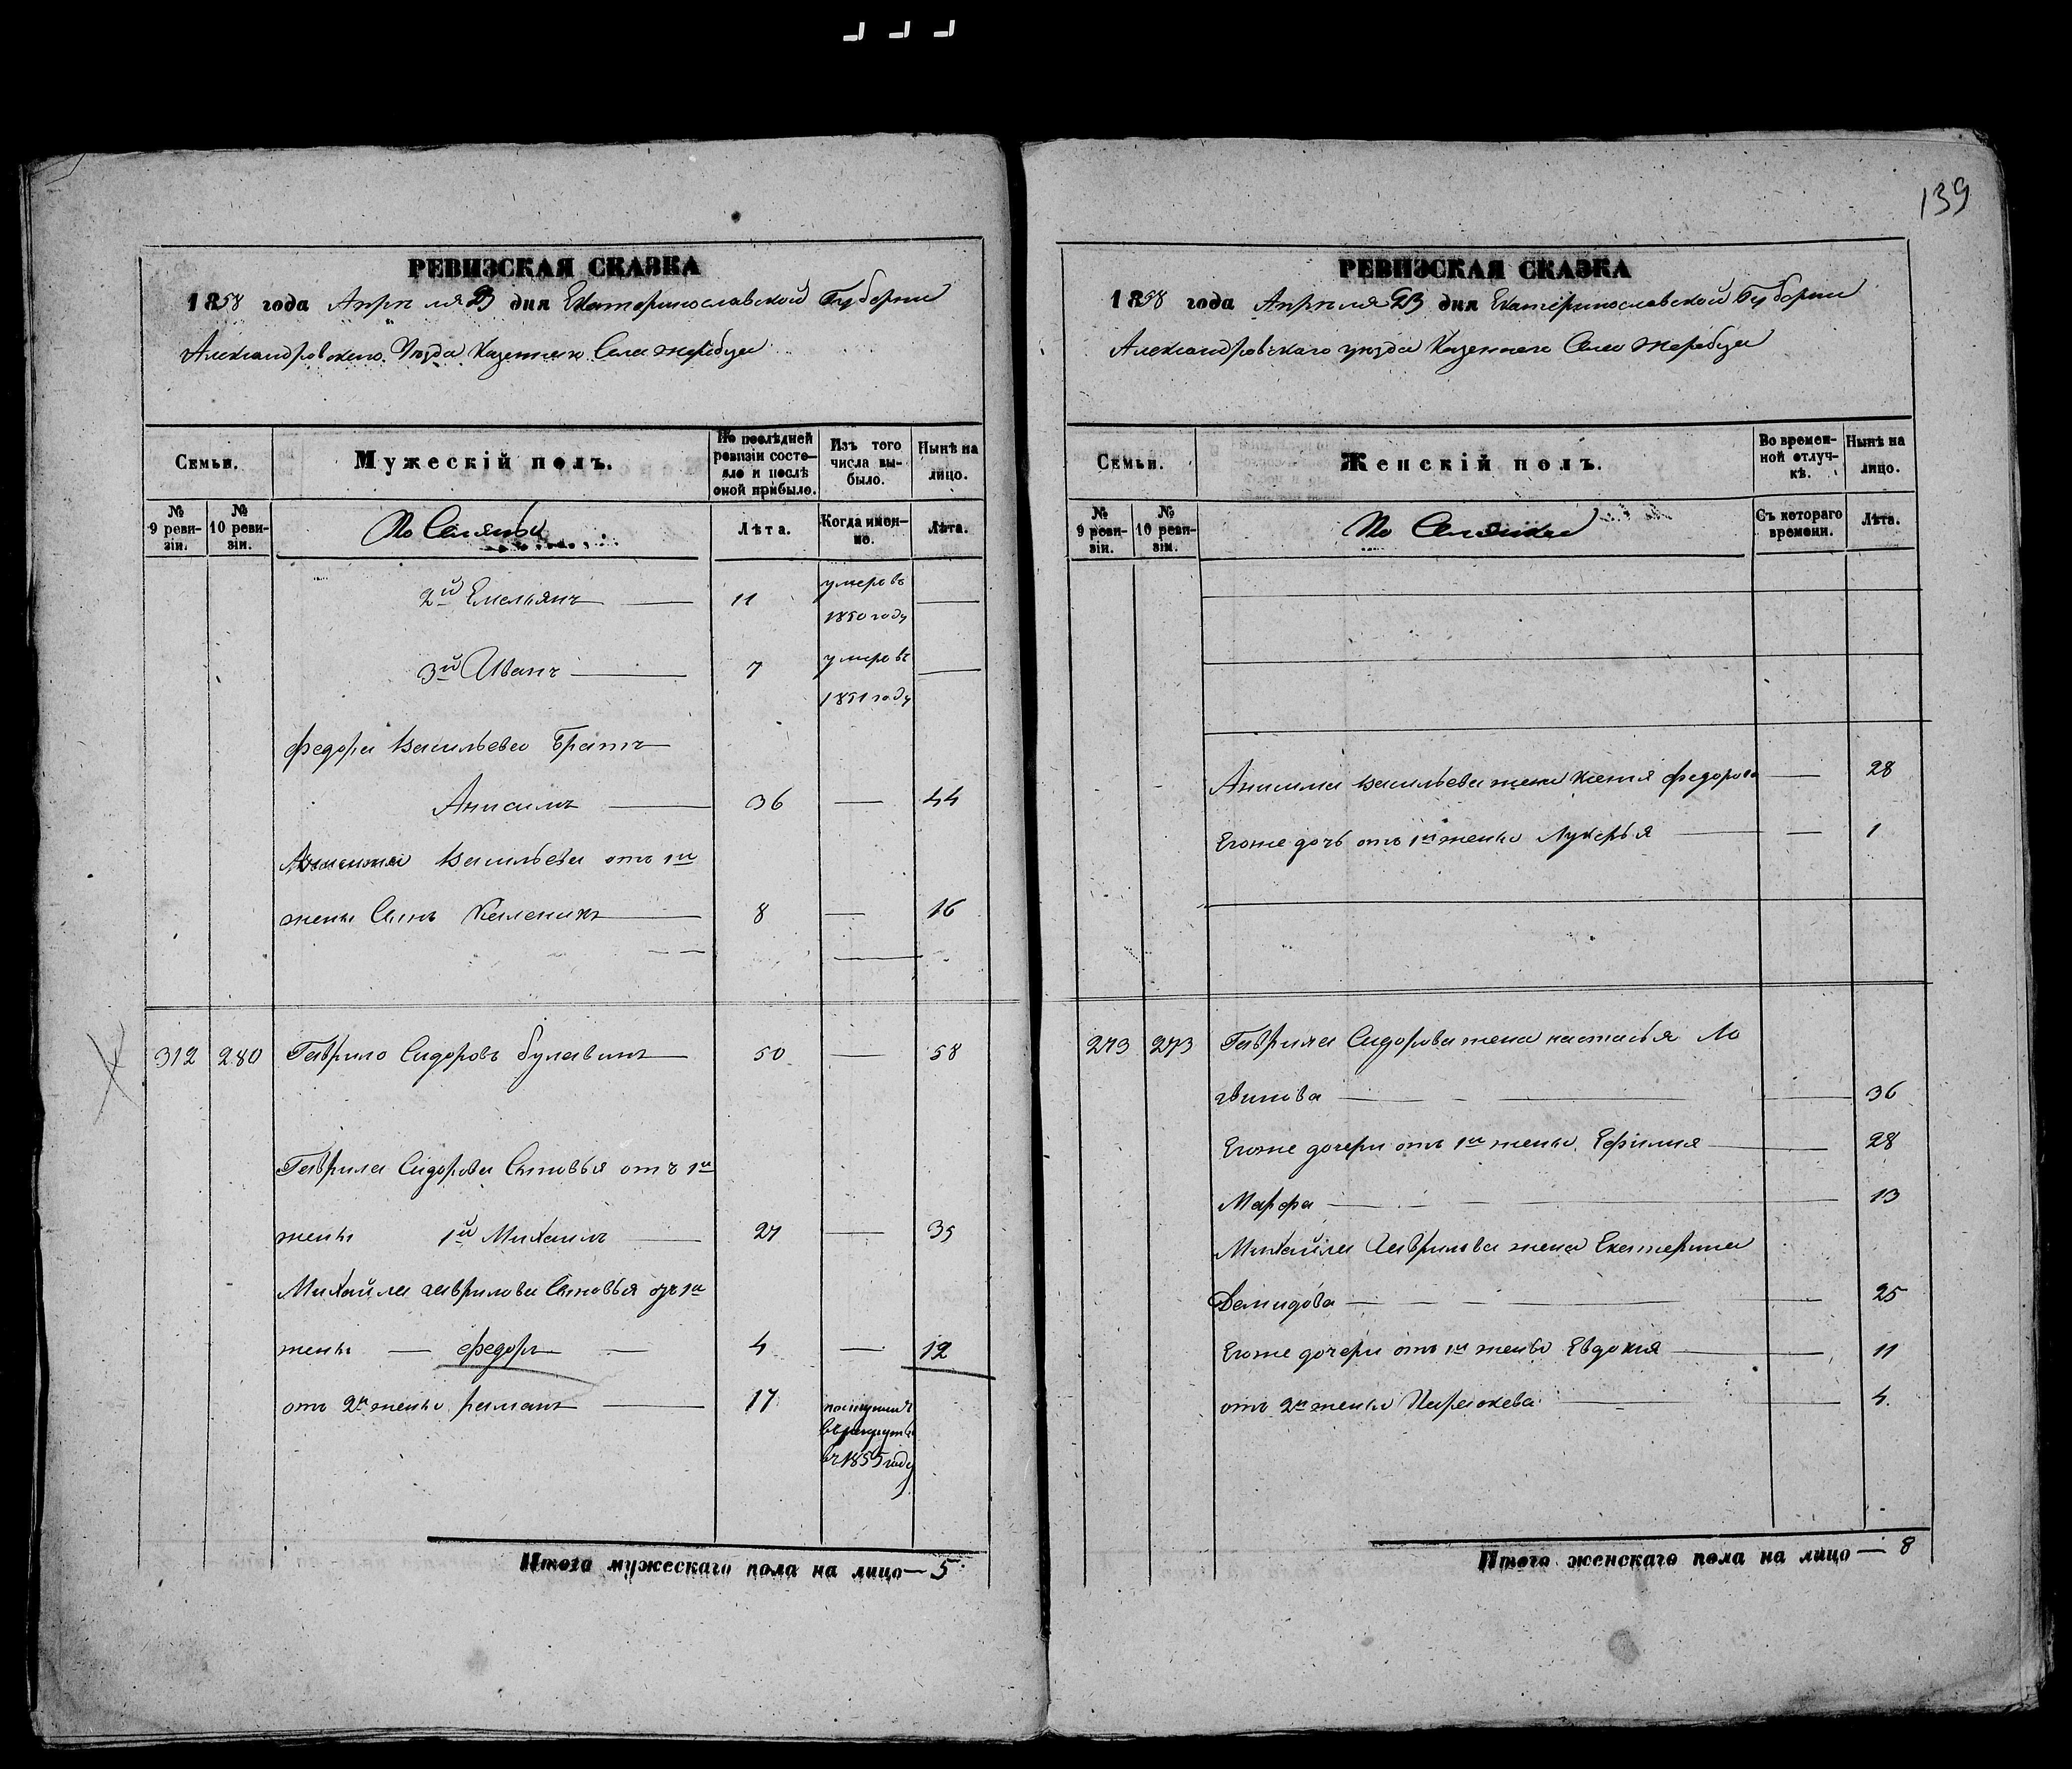 139
РЕВИЗСКАЯ СКАЗКА
1858 года Апрѣля 23 дня Екатеринославской Губернии
Александровскаго Уѣзда Казеннаго Села Жеребца
Семьи.
Мужескій полъ.
По послѣдней ревизіи состояло и послѣ оной прибыло.
Изъ того числа выбыло.
Нынѣ на лицо.
№ 9 ревизіи.
№ 10 ревизіи.
Лѣта.
Когда именно.
Лѣта.
2й Емельянъ 11 умеръ въ 1850 году
3й Иванъ 7 умеръ въ 1851 году
Федора Васильева Братъ
Анисимъ 36 — 44
Васильева отъ 1й
жены Сынъ Каленикъ 8 — 16
312 280 Гаврило Сидоровъ Булавинъ 50 — 58
Гаврила Сидорова Сыновья отъ 1й
жены 1й Михаилъ 27 — 35
Михайла Гаврилова Сыновья отъ 1й
жены — Федоръ — 4 — 12
отъ 2й жены Романъ 17
въ 1855 году
Итого мужескаго пола на лицо — 5
РЕВИЗСКАЯ СКАЗКА
1858 года Апрѣля 23 дня Екатеринославской Губернии
Александровскаго уѣзда Казеннаго Села Жеребца
Семьи.
Женскій полъ.
Во временной отлучкѣ.
Нынѣ на лицо.
№ 9 ревизіи.
№ 10 ревизіи.
Съ котораго времени.
Лѣта.
Анисима Васильева жена Ксения Федорова — 28
Егоже дочь отъ 1й жены Лукерья — 1
273 273 Гаврила Сидорова жена Настасья Ло
гвинова 36
Егоже дочери отъ 1й жены Ефимия 28
Марфа 13
Михайла Гаврилова жена Екатерина
Демидова 25
Егоже дочери отъ 1й жены Евдокия 11
отъ 2й жены Параскева 4
Итого женскаго пола на лицо — 8